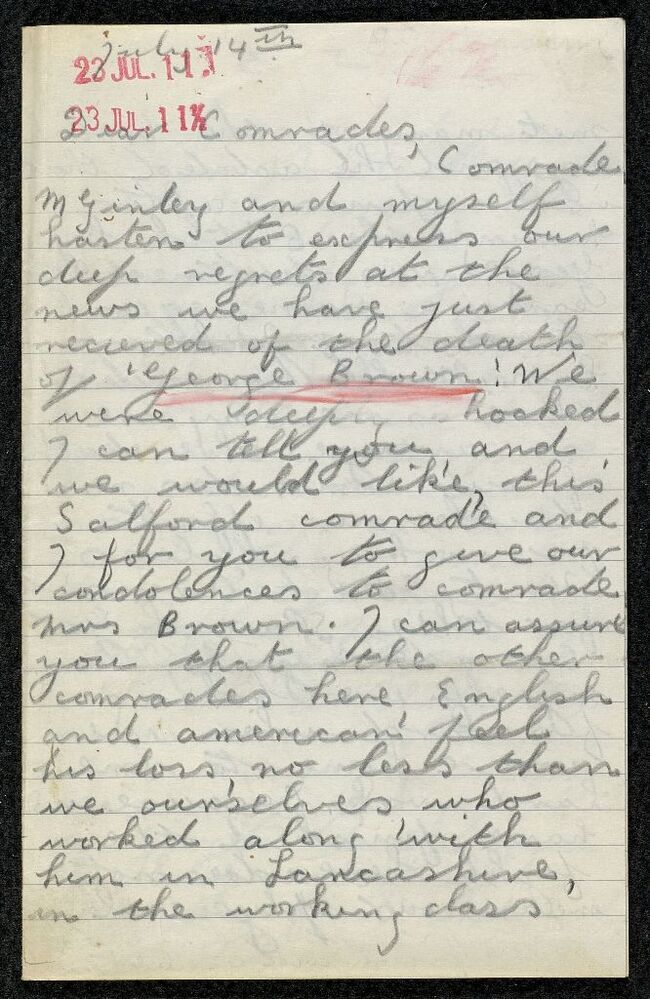 July 14th
23 JUL. 11
23 JUL. 11½
Dear Comrades,
Comrade
McGinley and myself
hasten to express our
deep regrets at the
news we have just
recieved of the death
of 'George Brown'! We
were deeply shocked
I can tell you and
we would like, this
Salford comrade and
I for you to give our
condolences to comrade
Mrs Brown. I can assure
you that the other
comrades here English
and american' feel
his loss, no less than
we ourselves who
worked along with
him in Lancashire,
in the working class